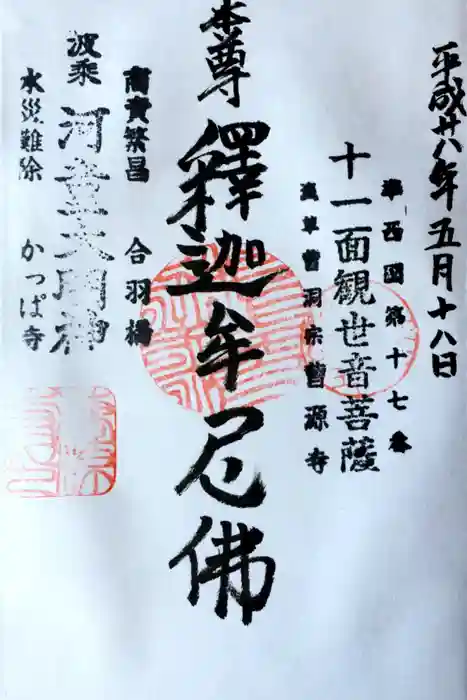 平成廿八年五月十八日
準西国第十七番
十一面観世音菩薩
浅草曹洞宗曹源寺
本尊
釋迦牟尼佛
商賣繁昌 合羽橋
波乗 河童大明神
水災難除 かっぱ寺